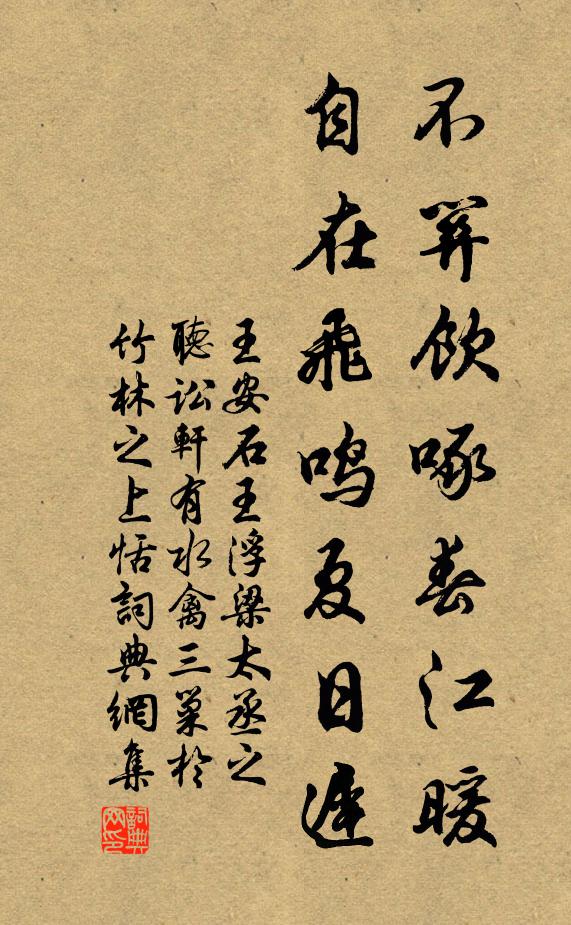 不飲啄春江暖
自在飛鳴夏日遲
王安石王浮梁太丞之
聽訟軒有水禽三巢於
竹林之上恬詞典網集
詞典网印